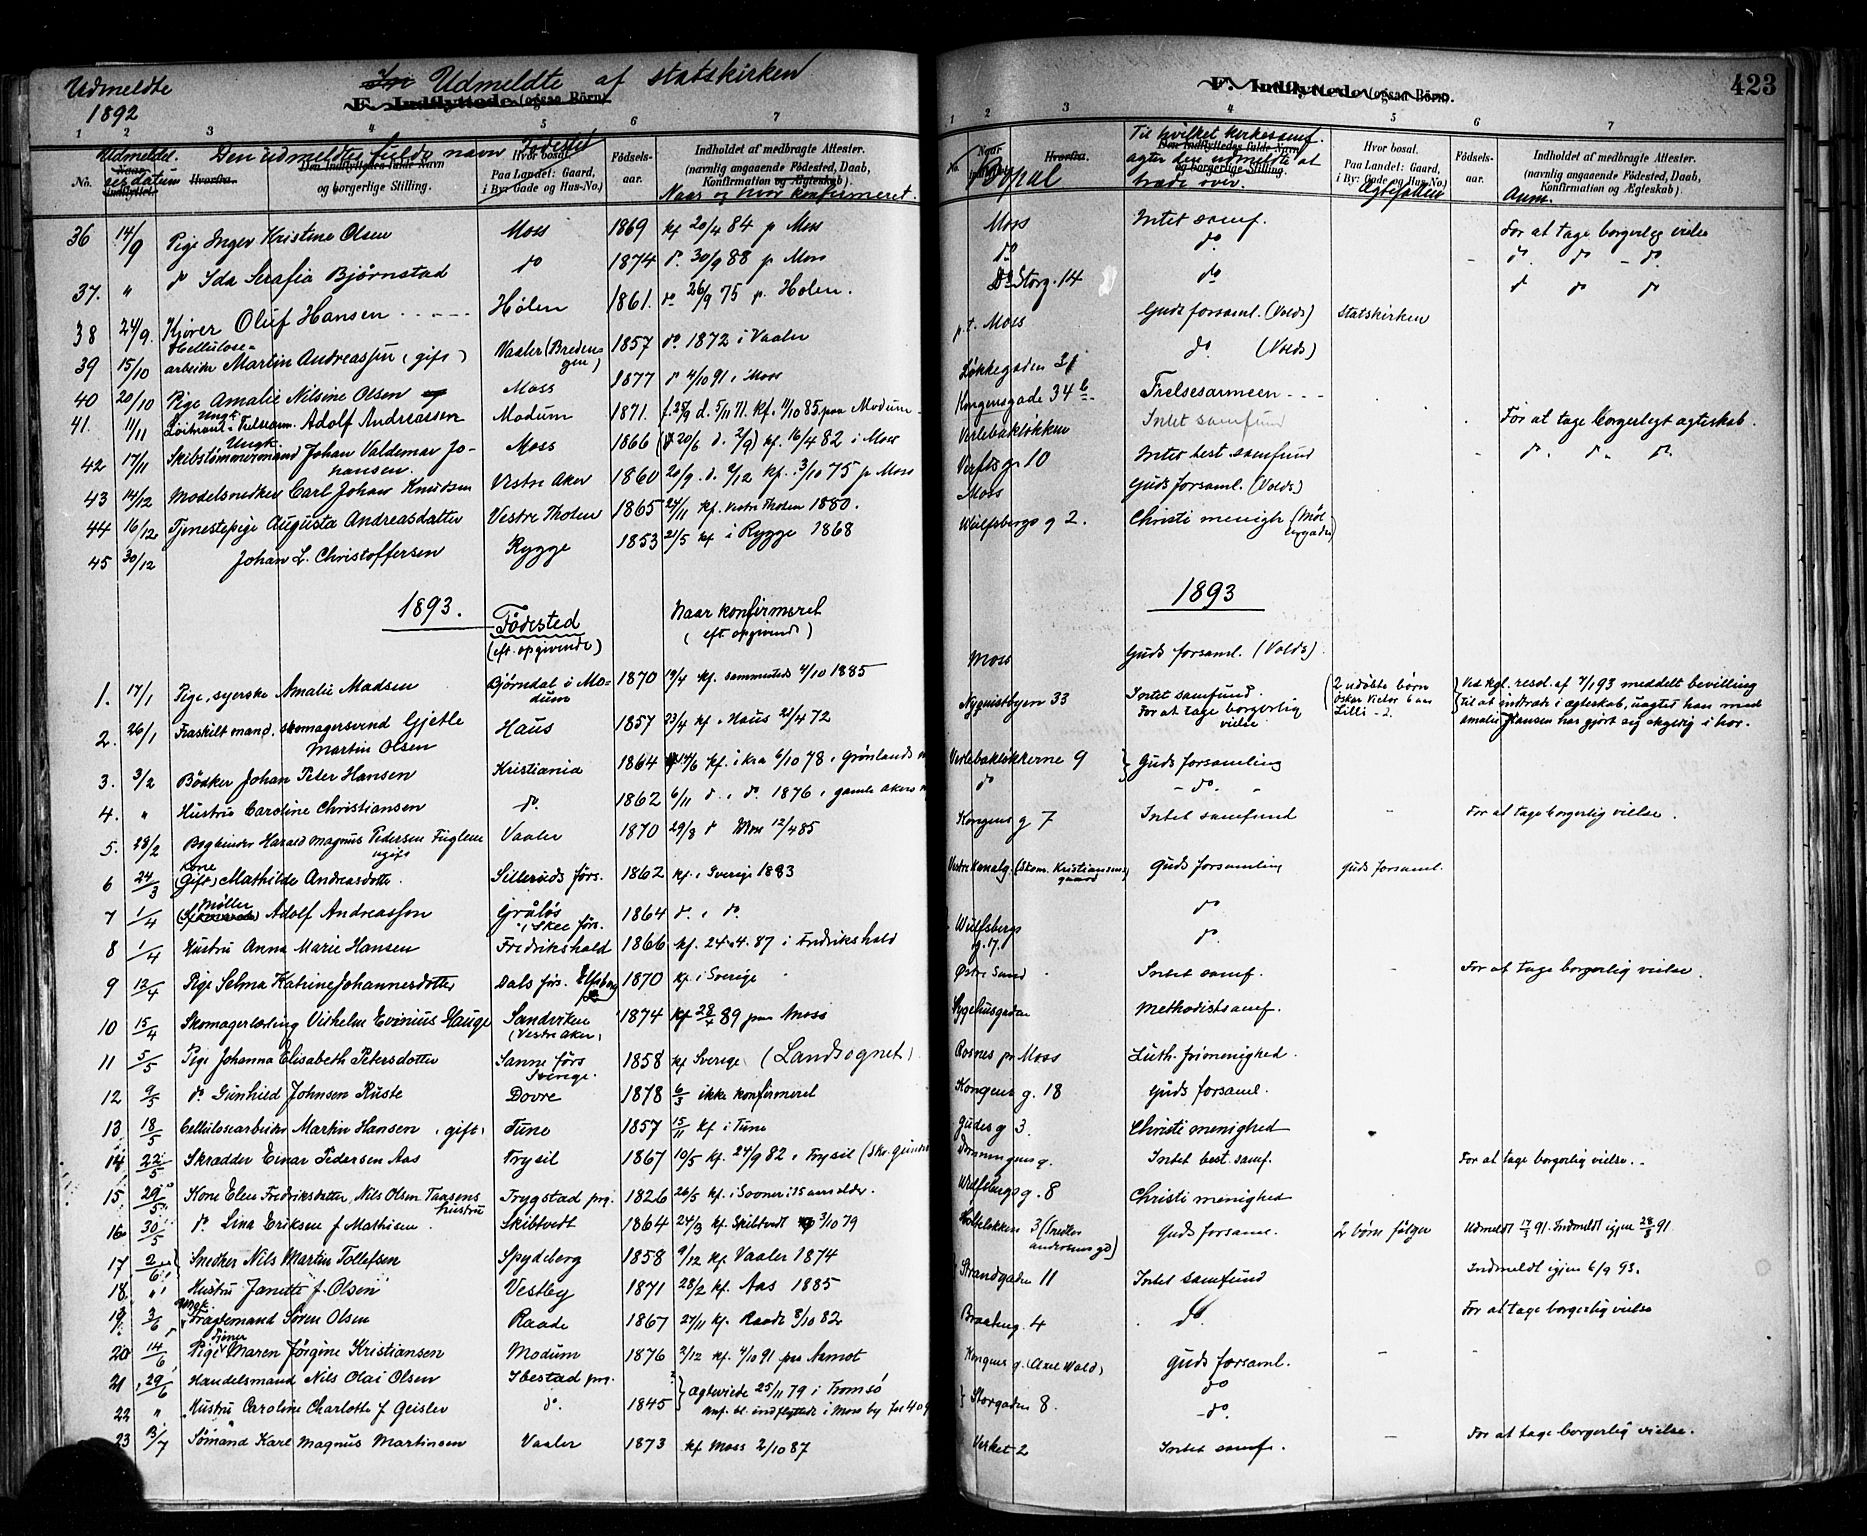 Udmeldte
1892
Udmeldte af statskirken
F. Indflyttede (ogsaa Börn).
1 2 3 4 5 6 7
No.
Udmeldt.
Naar indflyttet.
Hvorfra.
Den udmeldtes fulde navn
Den Indflyttedes fulde Navn og borgerlige Stilling.
Fødested
Hvor bosat. Paa Landet: Gaard, i By: Gade og Hus-No.)
Födsels-aar.
Indholdet af medbragte Attester. (navnlig angaaende Födested, Daab, Konfirmation og Ægteskab).
Naar og hvor konfirmeret.
36 14/9 Pige Inger Kristine Olsen Moss 1869 kf 20/4 84 p Moss
37. " do Ida Serafia Bjørnstad do 1874 do 30/9 88 p Moss
38 24/9. Kjører Oluf Hansen Hølen 1861. do 26/9 75 p. Holen.
39 15/10 Cellulose-arbeider Martin Andreassen (gift) Vaaler (Bredengen) 1857 do 1872 i Vaaler
40 20/10 Pige Amalie Nilsine Olsen Moss 1877 do 4/10 91 i Moss
41. 11/11 Ungk. Adolf Andreassen Modum 1871. f. 25/9 d. 5/11 71. kf. 11/10 85 paa Modum
42 17/11 Ungk. Skibstømmermand Johan Valdemar Johansen. Moss 1866 kf. 16/4 82 i Moss
43 14/12 Modelsnedker Carl Johan Knudsen Vestre Aker 1860 20/9 d. 2/12 kf. 3/10 75 p Moss
44 16/12 Tjenestepige Augusta Andreasdatter Vestre Thoten 1865 24/11 kf. Vestre Thoten 1880.
45 30/12 Johan L. Christoffersen Rygge 1853 21/5 kf i Rygge 1868
1893.
Födested
(eft. opgivende)
Naar konfirmeret
(eft opgivende)
1. 17/1 Pige, syerske Amalie Madsen Bjørndal i Modum 1870 19/4 kf. sammesteds 4/10 1885
2. 26/1 Fraskilt mand, skomagersvend Gjetle Martin Olsen Haus 1857 23/4 kf i Haus 21/4 72
3. 3/2 Bödker Johan Peter Hansen Kristiania 1864 kf. i Kra 6/10 78, Grønlands
4. " Hustru Caroline Christiansen do. 1862 6/11 do. i do. 1876, gamle Akers
5. 28/2 Bogbinder Harald Magnus Pedersen Fuglem ugift Vaaler 1870 29/8 do Moss 12/4 85
6 24/3 Kone (Gift) Mathilde Andreasdotter. Silleruds förs. 1862 kf. i Sverige 1883
7 1/4 Møller Adolf Andreasson i Skee förs. 1864 do. i do.
8 1/4 Hustru Anna Marie Hansen Fredrikshald 1866 kf. 24.4.87 i Fredrikshald
9 13/4 Pige Selma Katrine Johannesdotter Dals förs. Elfsborg 1870 kf. i Sverige
10 15/4 Skomagerlærling Vilhelm Evinius Hauge Sandviken (Vestre Aker) 1874 kf 28/4 89 paa Moss
11 5/5 Pige Johanna Elisabeth Petersdotter Sanne förs Sverige. 1858 kf Sverige (Landsognet)
12 9/5 do. Gunhild Johnsen Ruste Dovre 1878 6/3 ikke konfirmeret
13 18/5 Cellulosearbeider Martin Hansen, gift, Tune 1857 15/11 kf i Tune
14 22/5 Skrædder Einar Pedersen Aas Trysil 1867 10/5 kf. 24/9 82, Trysil
15 29/5 Kone Elen Fredriksdatter, Nils Olsen Taasens hustru Trygstad prg. 1826 26/5 kf. i Sooner i 15 aars alder.
16 30/5 do. Lina Eriksen f. Mathisen. Skibtvedt 1864 24/3 kf. Skibtvedt 3/10 79
17 2/6 Snedker Nils Martin Tollefsen Spydeberg 1858 9/12 kf Vaaler 1874
18. " Hustru Janette f. Olsen Vestby 1871 28/2 kf. Aas 1885
19. 3/6 Ungk. Fragtemand Sören Olsen Raade 1867 27/11 kf. Raade 8/10 82
20 14/6 Pige Maren Jörgine Kristiansen Modum 1876 2/12 kf. 4/10 91 paa Aamot
21 29/6 Handelsmand Nils Olai Olsen Ibestad prg. ?
22 " Hustru Caroline Charlotte f Geisler do. 1845 Ægteviede 25/11 79 i Tromsö
Anf. bl. indflyttede i Moss by for 409
23 13/7 Sømand Karl Magnus Martinsen Vaaler 1873 kf Moss 2/10 87
F. Indflyttede (ogsaa Börn).
423
1 2 3 4 5 6 7
Naar indflyttet.
Bopæl
Hvorfra.
Til hvilket kirkesamf. agter den udmeldte at træde over.
Den Indflyttedes fulde Navn og borgerlige Stilling.
Hvor bosat. Paa Landet: Gaard, i By: Gade og Hus-No.)
Ægtefælle
Födsels-aar.
Indholdet af medbragte Attester. (navnlig angaaende Födested, Daab, Konfirmation og Ægteskab).
Anm.
Moss Intet samf. For at tage borgerlig vielse
do do. do. do - do.
Do Storg. 14 do do do do
p.t. Moss Guds forsaml. (Volds) Statskirken
Løkkegaden 31 do. (Volds)
Kongensgade 34 b Frelsesarmeen
Verlebakløkken Intet samfund For at tage borgerligt ægteskab.
Verftsg. 10 Intet best samfund do. do. do.
Moss Guds forsaml. (Volds)
Wulfsbergs g 2. Christi menigh
1893
Moss Guds forsaml. (Volds)
Nyquistbyen 33 Intet samfund. For at tage borgerlig vielse (2 udøbte børn Oskar Victor 6 aar Lilli - 2. Ved kgl. resol. af 7/1 93 meddelt bevilling til at indtræde i ægteskab, uagtet han med Amalie Hansen har gjort sig skyldig i hor.
Verlebakløkkerne 9 Guds forsamling
do - do. -
Kongens g 7 Intet samfund - For at tage borgerlig vielse.
Vestre Kanalg. (Skom. Kristiansens gaard) Guds forsamling Guds forsaml.
do
Wulfsbergs g. 7. do.
Østre Sund Intet samf. - For at tage borgerlig vielse.
Sygehusgaden Methodistsamf.
Rosnes pr Moss Luth. frimenighed.
Kongens g. 18 Guds forsaml.
Gudes g 3. Christi menighed
Dronningens g. Intet best. samf. For at tage borgerlig vielse.
Wulfsbergs g. 8 Christi menighed
3 (Snedker Andersens gd) Guds forsaml. 2 börn fölger Udmeldt 17/3 91. Indmeldt igjen 28/8 91.
Strandgaden 11 Intet samfund Indmeldt igjen 6/9 93.
Braateng. 4 do. For at tage borgerlig vielse
Kongens g. (Axel Wold) Guds forsaml.
Storgaden 8. do
- do.
Verket 2 Intet samf. - For at tage borgerlig vielse.